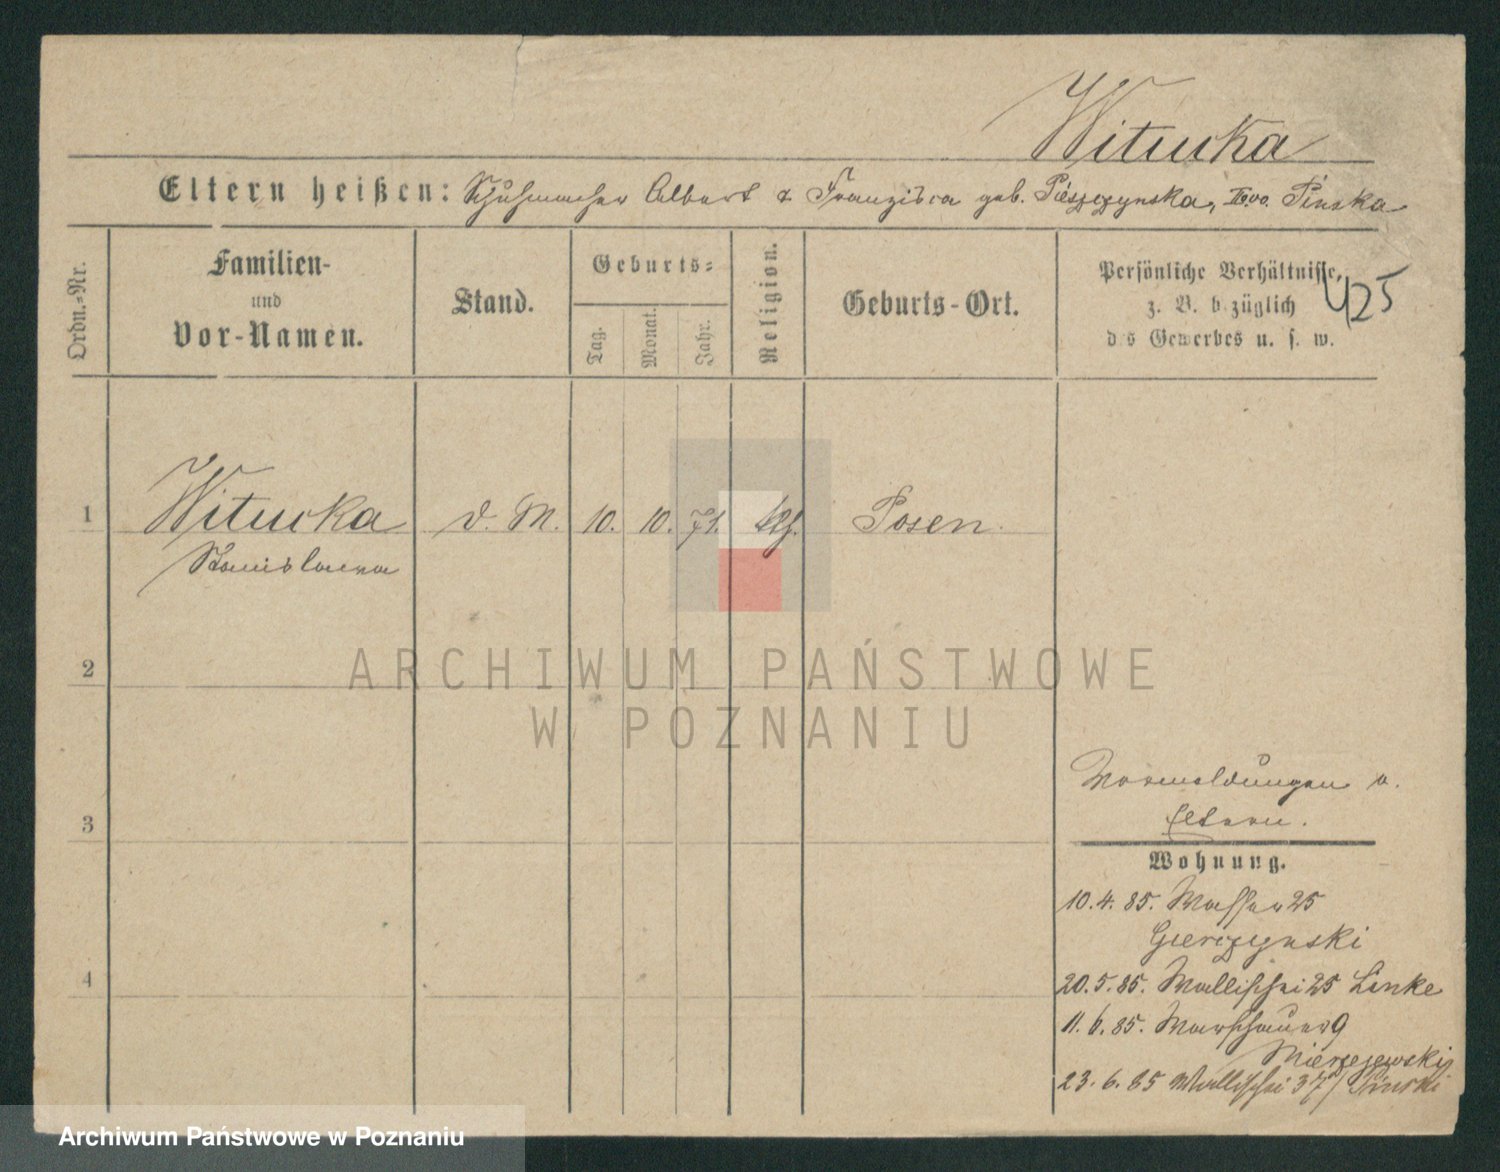 Witucka
Eltern heißen: Schuhmacher Albert & Franzisca geb. Pieszczynska, IIo vo. Pinska
Ordn.-Nr.
Familien-
und
Vor-Namen.
Stand.
Geburts-
Tag.
Monat.
Jahr.
Religion.
Geburts-Ort.
Persönliche Verhältnisse,
z. B. bezüglich
des Gewerbes u. s. w.
425
1 Witucka d. M. 10. 10. 71. kth. Posen.
Stanislawa
2
3
4
Vormeldungen v.
Eltern.
Wohnung.
10. 4. 85. Wasser 25
Gierczynski
20. 5. 85. Wallischei 25 Linke
11. 6. 85. Warschauer 9
Mierzejewski
23. 6. 85 Wallischei 37/ Pinski
ARCHIWUM PAŃSTWOWE
W POZNANIU
Archiwum Państwowe w Poznaniu